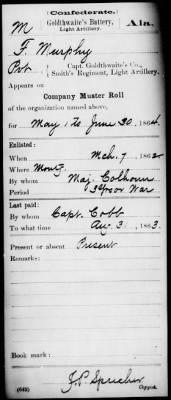 (Confederate.)
M
Goldthwaite's Battery,
Light Artillery.
Ala.
F. Murphy
Pvt
Capt. Goldthwaite's Co.,
Smith's Regiment, Light Artillery.
Appears on
Company Muster Roll
of the organization named above,
for May 1 to June 30, 1864.
Enlisted:
When Mch. 7, 1862
Where Montg.
By whom Maj. Calhoun
Period 3 yrs or War
Last paid:
By whom Capt. Cobb
To what time Aug. 31, 1863.
Present or absent Present
Remarks:
Book mark:
(642)
Copyist.